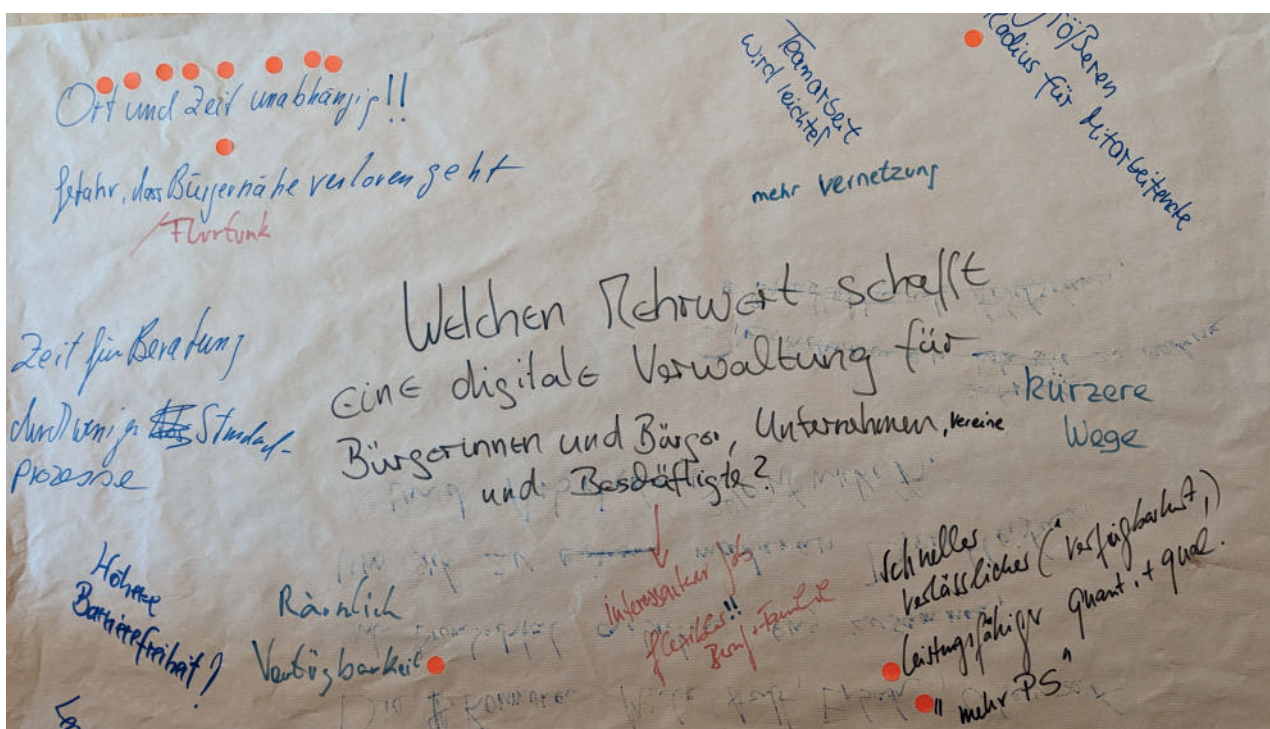 Ort und Zeit unabhängig!!
Gefahr, dass Bürgernähe verloren geht
/Flurfunk
Teamarbeit
wird leichter
mehr Vernetzung
größeren
Radius für Mitarbeitende
Welchen Mehrwert schafft
eine digitale Verwaltung für
Bürgerinnen und Bürger, Unternehmen, Vereine
und Beschäftigte?
Zeit für Beratung
durch weniger Standard-
Prozesse
kürzere
Wege
Höhere
Barrierefreiheit?
Räumlich
Verfügbarkeit
interessanter Job
flexibler!!
Beruf + Familie
schneller
verlässlicher (Verfügbarkeit,)
leistungsfähiger quant. + qual.
"mehr PS"